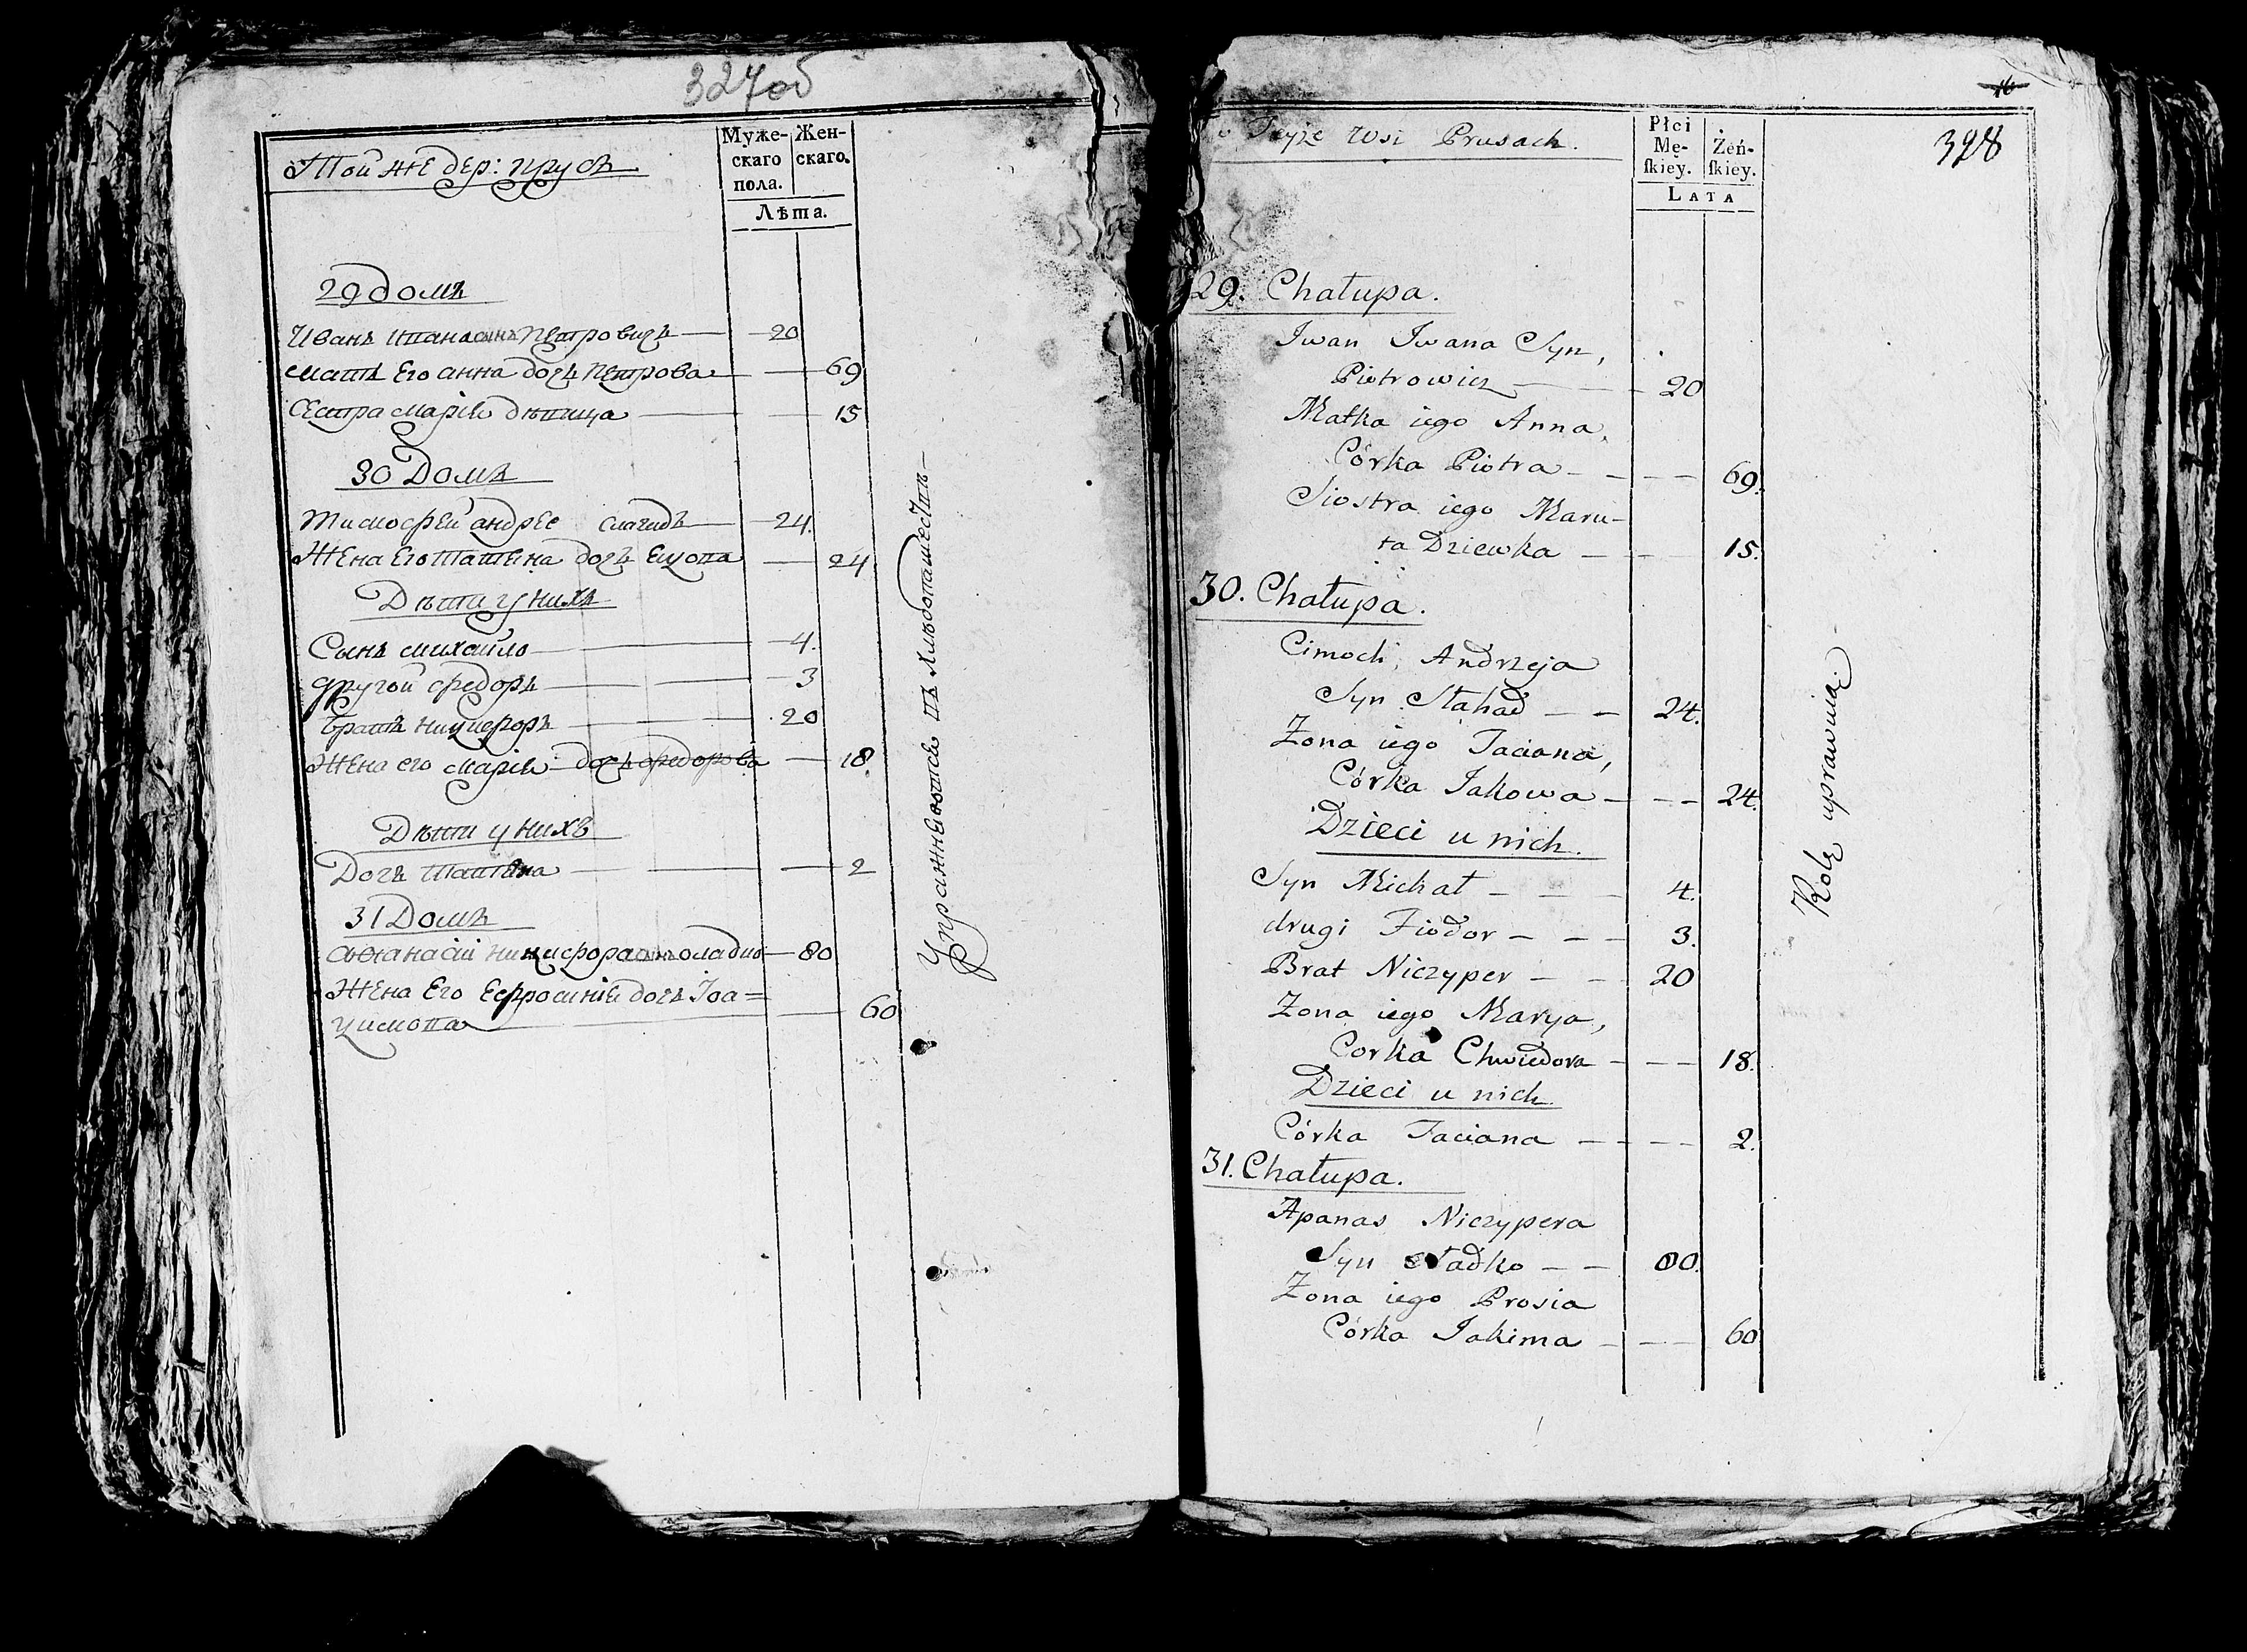 327об
Той же дер: Прусъ
Муже-
скаго
пола.
Жен-
скаго.
Лѣта.
29 Домъ
Иванъ Ивана сынъ Петровичъ 20
Мать Его Анна дочь Петрова 69
Сестра Марія дѣвица 15
30 Домъ
Тимофей Андрее 24.
Жена Его Татьяна дочь 24
Дѣти у нихъ
Сынъ Михайло 4.
другой Федоръ 3
Братъ Никифоръ 20
Жена его Марія дочь Федорова 18
Дѣти у нихъ
Дочь Татьяна 2
31 Домъ
Афанасій Никифора сынъ 80
Жена Его Ефросинія дочь Іоа=
кимова 60
Упражняются въ Хлѣбопашествѣ
w Teyże Wsi Prusach.
Płci
Mę-
skiey.
Żeń-
skiey.
LATA
328
29. Chałupa.
Iwan Iwana Syn,
Piotrowicz 20
Matka iego Anna,
Córka Piotra 69.
Siostra iego Maru-
ta Dziewka 15.
30. Chałupa.
Cimoch, Andrzeja
Syn Stahad 24.
Zona iego Taciana,
Córka Jakowa 24.
Dzieci u nich.
Syn Michał 4.
drugi Fiodor 3.
Brat Niczyper 20
Zona iego Marya,
Corka Chwiedora 18.
Dzieci u nich
Córka Taciana 2.
31. Chałupa.
Apanas Niczypera
Syn 80.
Zona iego Prosia
Córka Jakima 60
Rolę uprawuią.